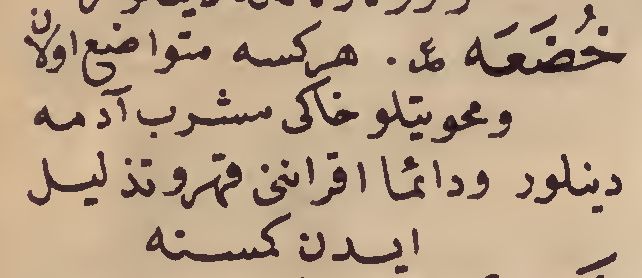 خُضَعَه ع . هركسه متواضع اولان
ومحويتلو خاكى مشرب آدمه
دينلور ودائما اقراننى قهر وتذليل
ايدن كمسنه